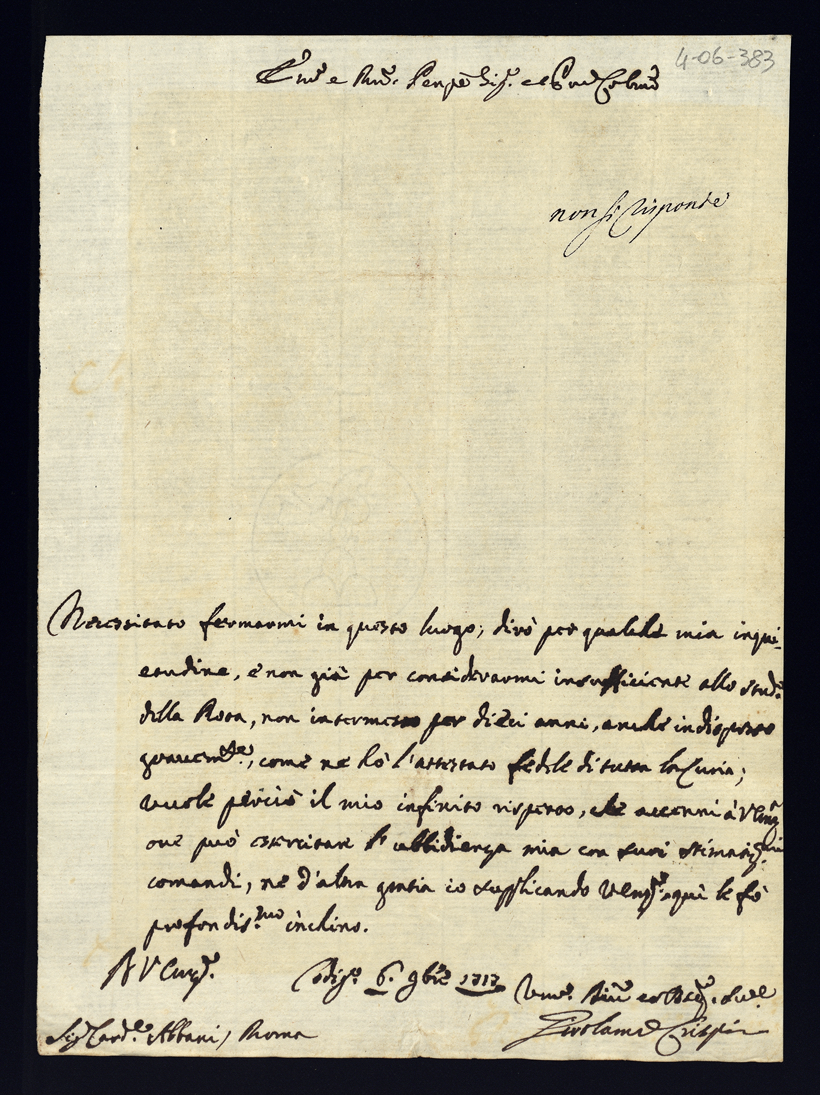 4-06-383
Em.º e Rm.º Sempre Sig.r e Pron Colmo
non si risponde
Necessitato fermarmi in questo luogo, dirò per qualche mia inqui-
etudine, e non già per considerarmi insufficiente allo stud.º
della Rota, non intermesso per dieci anni, anche indisposto
gravem.te, come ne hò l'attestato fedele di tutta la Curia;
vuole perciò il mio infinito rispetto, che accenni à V. Emz.
ove può esercitare l'ubbidienza mia con suoi stimatiss.mi
comandi, ne d'altra gratia io supplicando V. Emz.ª, quì le fò
profondis.mo inchino.
A V. Emz.ª
6. 9bre 1717
Vmo. Dmo. et Obg.
Sig. Card.le Albani / Roma
Girolamo Crispi